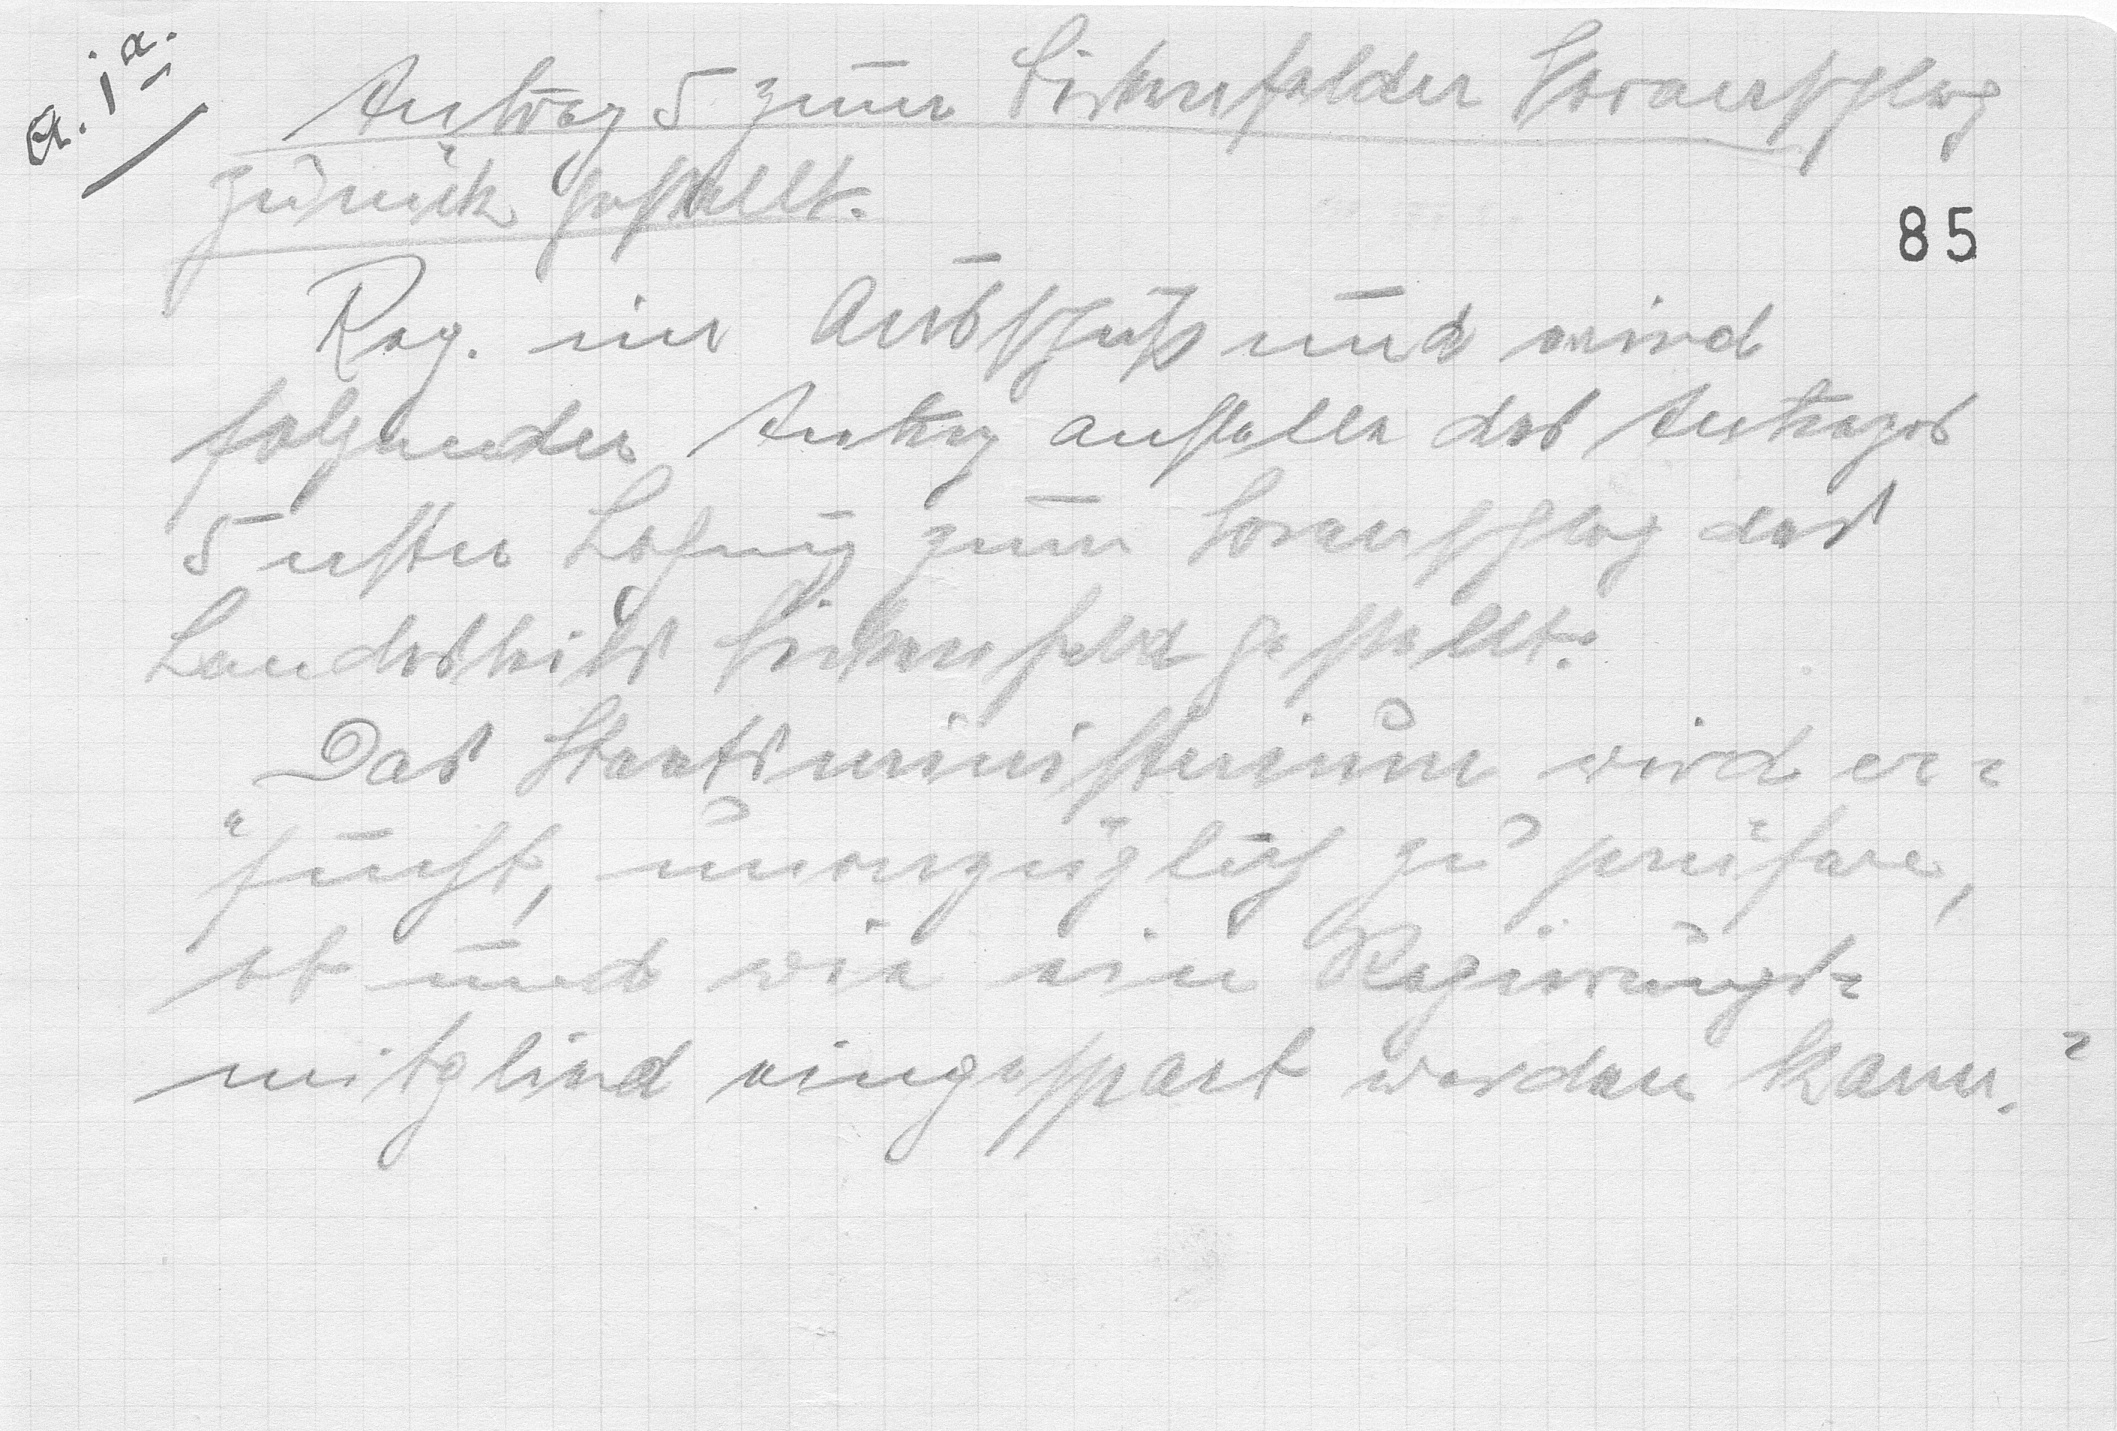 a. ja.
Antrag 5 zum Birkenfelder Voranschlag
zurück gestellt.
85
Reg. im Ausschuß und wird
folgender Antrag anstelle des Antrages
5 erster Lesung zum Voranschlag des
Landesteils Birkenfeld gestellt:
Das Staatsministerium wird er=
"sucht, unverzüglich zu prüfen,
ob und wie ein Regierungs=
mitglied eingespart werden kann."